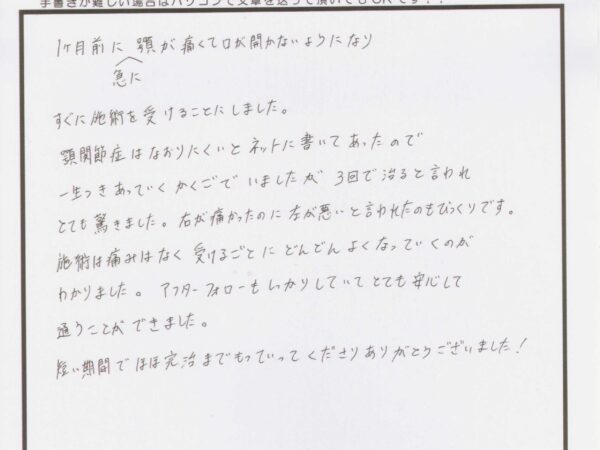 手書きが難しい場合はパソコンで文章を送って頂いてもOKです!!
1ヶ月前に 顎が痛くて口が開かないようになり
急に
すぐに施術を受けることにしました。
顎関節症はなおりにくいと ネットに書いてあったので
一生つきあっていく かくごで いましたが 3回で治ると言われ
とても驚きました。右が痛かったのに左が悪いと言われたのもびっくりです。
施術は痛みはなく 受けるごとに どんどん よくなっていくのが
わかりました。 アフターフォローもしっかりしていて とても安心して
通うことができました。
短い期間でほぼ完治までもっていってくださりありがとうございました!